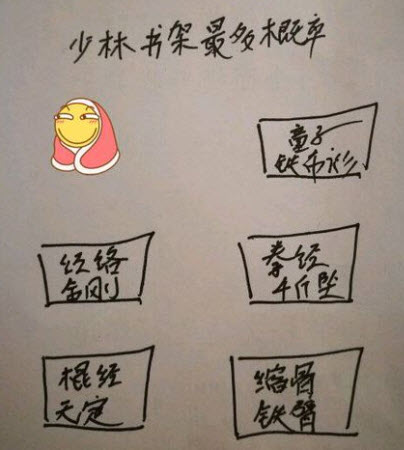 少林书架最多概率
童子
铁布衫
经络
金刚
拳经
千斤坠
棍经
天定
缩骨
铁臂